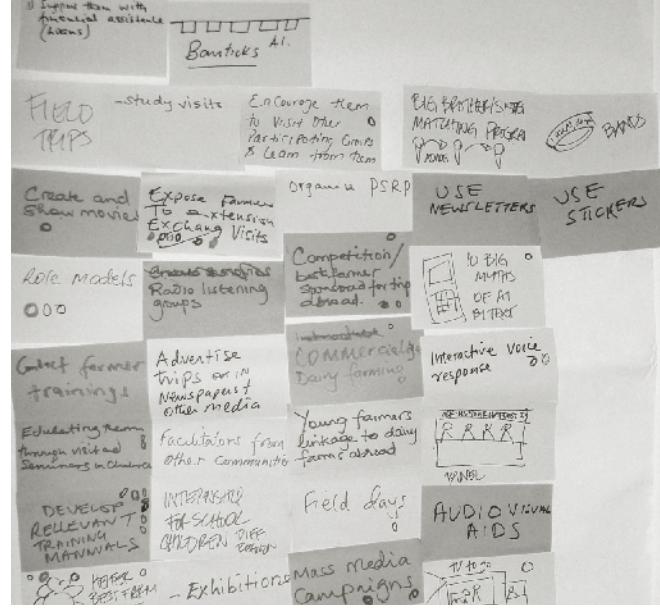 1) Support them with
financial assistance
(Loans)
A.I.
FIELD
TRIPS
-study visits
Encourage them
to visit other
Participating Groups
& learn from them
MATCHING PROGRAM
BANDS
Create and
Show movies
Expose Farmers
To
Exchang Visits
Organise PSRP
USE
NEWSLETTERS
USE
STICKERS
Role Models
Radio listening
groups
Competition/
best farmer
sponsored for trip
abroad.
10 BIG
MYTHS
OF AI
trainings
Advertise
trips
in
Newspapers &
Other media
COMMERCIALIZE
Dairy farming
Interactive Voice
response
Educating them
through
Seminars in
Facilitators from
Other Communities
Young farmers
linkage to dairy
farms abroad
PANEL
DEVELOP
RELLEVANT
TRAINING
MANNUALS
INTERNSHIP
FOR SCHOOL
CHILDREN DIFF
Field days
AUDIO VISUAL
AIDS
BEST FARM
- Exhibitions
Mass media
Campaigns